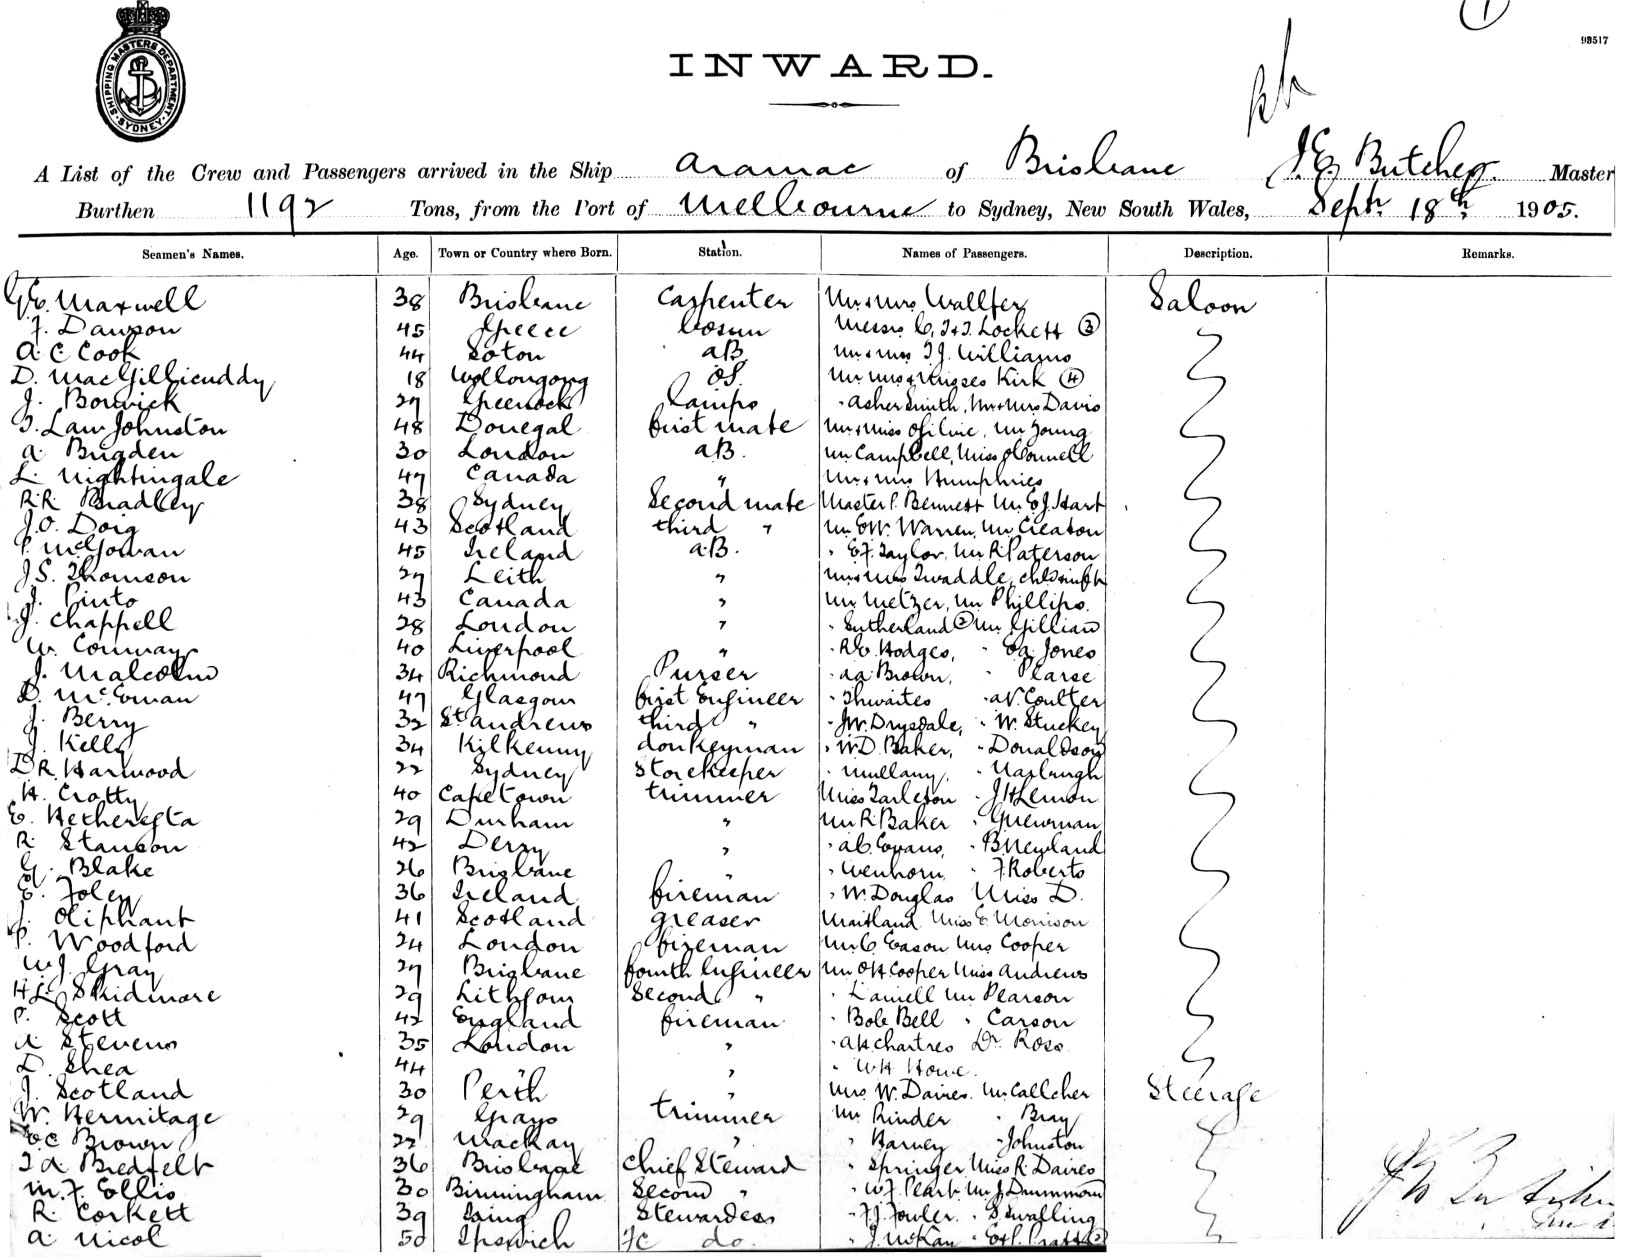 1
98517
SHIPPING MASTERS DEPARTMENT
SYDNEY
INWARD.
A List of the Crew and Passengers arrived in the Ship Aramac of Brisbane J.E. Butcher Master
Burthen 1192 Tons, from the Port of Melbourne to Sydney, New South Wales, Sept. 18th 1905.
Seamen's Names. Age. Town or Country where Born. Station. Names of Passengers. Description. Remarks.
Maxwell 38 Brisbane Carpenter Mr & Mrs Saloon
J. Dawson 45 Greece Bosun Messrs C, J & J. Lockett (3)
A C Cook 44 Soton AB Mr & Mrs T J. Williams
D. MacGillicuddy 18 Wollongong OS. Mr Mrs & Misses Kirk (4)
J. Borwick 27 Greenock Lamps " Asher Smith, Mr & Mrs Davis
T. Law Johnston 48 Donegal first mate Mr & Miss Ogilvie, Mr Young
A. Brigden 30 London AB. Mr Campbell, Miss O'Connell
L. Nightingale 47 Canada " Mr & Mrs Humphries
R.R. Bradley 38 Sydney Second mate Master P. Bennett Mr E J. Hart
J.O. Doig 43 Scotland third " Mr E W. Warren, Mr Cleaton
P. McGowan 45 Ireland AB. " E J. Taylor, Mr R Paterson
J.S. Thomson 27 Leith " Mr & Mrs Twaddle, chld & infh
J. Pinto 43 Canada " Mr Metzer, Mr Phillips.
J. Chappell 28 London " " Sutherland (2) Mr Gillian
W. Conway 40 Liverpool " " R E. Hodges, " Jones
J. Malcolm 34 Richmond Purser " A A Brown, " Pearse
D. McEwan 47 Glasgow first Engineer " Thwaites " A V. Coulter
J. Berry 32 St Andrews third " " J W. Drysdale, " W. Stuckey
J. Kelly 34 Kilkenny donkeyman " W D. Baker, " Donaldson
D R Harwood 22 Sydney Storekeeper " Mullany,
H. Crotty 40 Capetown trimmer Miss Tarleton " J H Lemon
E. Hetherington 29 Durham " Mr R Baker " G Newman
R. Stanson 42 Derry " " A C. Evans, " B Newland
G. Blake 26 Brisbane " " Wenhorn " F. Roberts
E. Foley 36 Ireland fireman " W. Douglas Miss D.
J. Oliphant 41 Scotland greaser Maitland Miss E Morrison
P. Woodford 24 London fireman Mr C Eason Mrs Cooper
W.J. Gray 27 Brisbane fourth Engineer Mr O H Cooper Miss Andrews
H L Skidmore 29 Lithgow Second " " Daniell Mr Pearson
P. Scott 42 England fireman " Bob Bell " Carson
A Stevens 35 London " " A H Chartres Dr. Ross
D. Shea 44 " " W H Howe.
J. Scotland 30 Perth " Mrs W. Davies. Mr Callcher Steerage
W. Hermitage 29 Grays trimmer Mr Rinder " Bray
E C Brown 22 Mackay " " Harvey " Johnston
J A Bredfelt 36 Brisbane Chief Steward " Springer Miss R. Davies
M. F. Ellis 30 Birmingham Second " " W J. Peart, Mr J Drummond
R. Corkett 39 Stewardess " F J. Fowler. " S Swalling
A Nicol 50 Ipswich FC do. " J. McKay " E & P. Pratt (2)